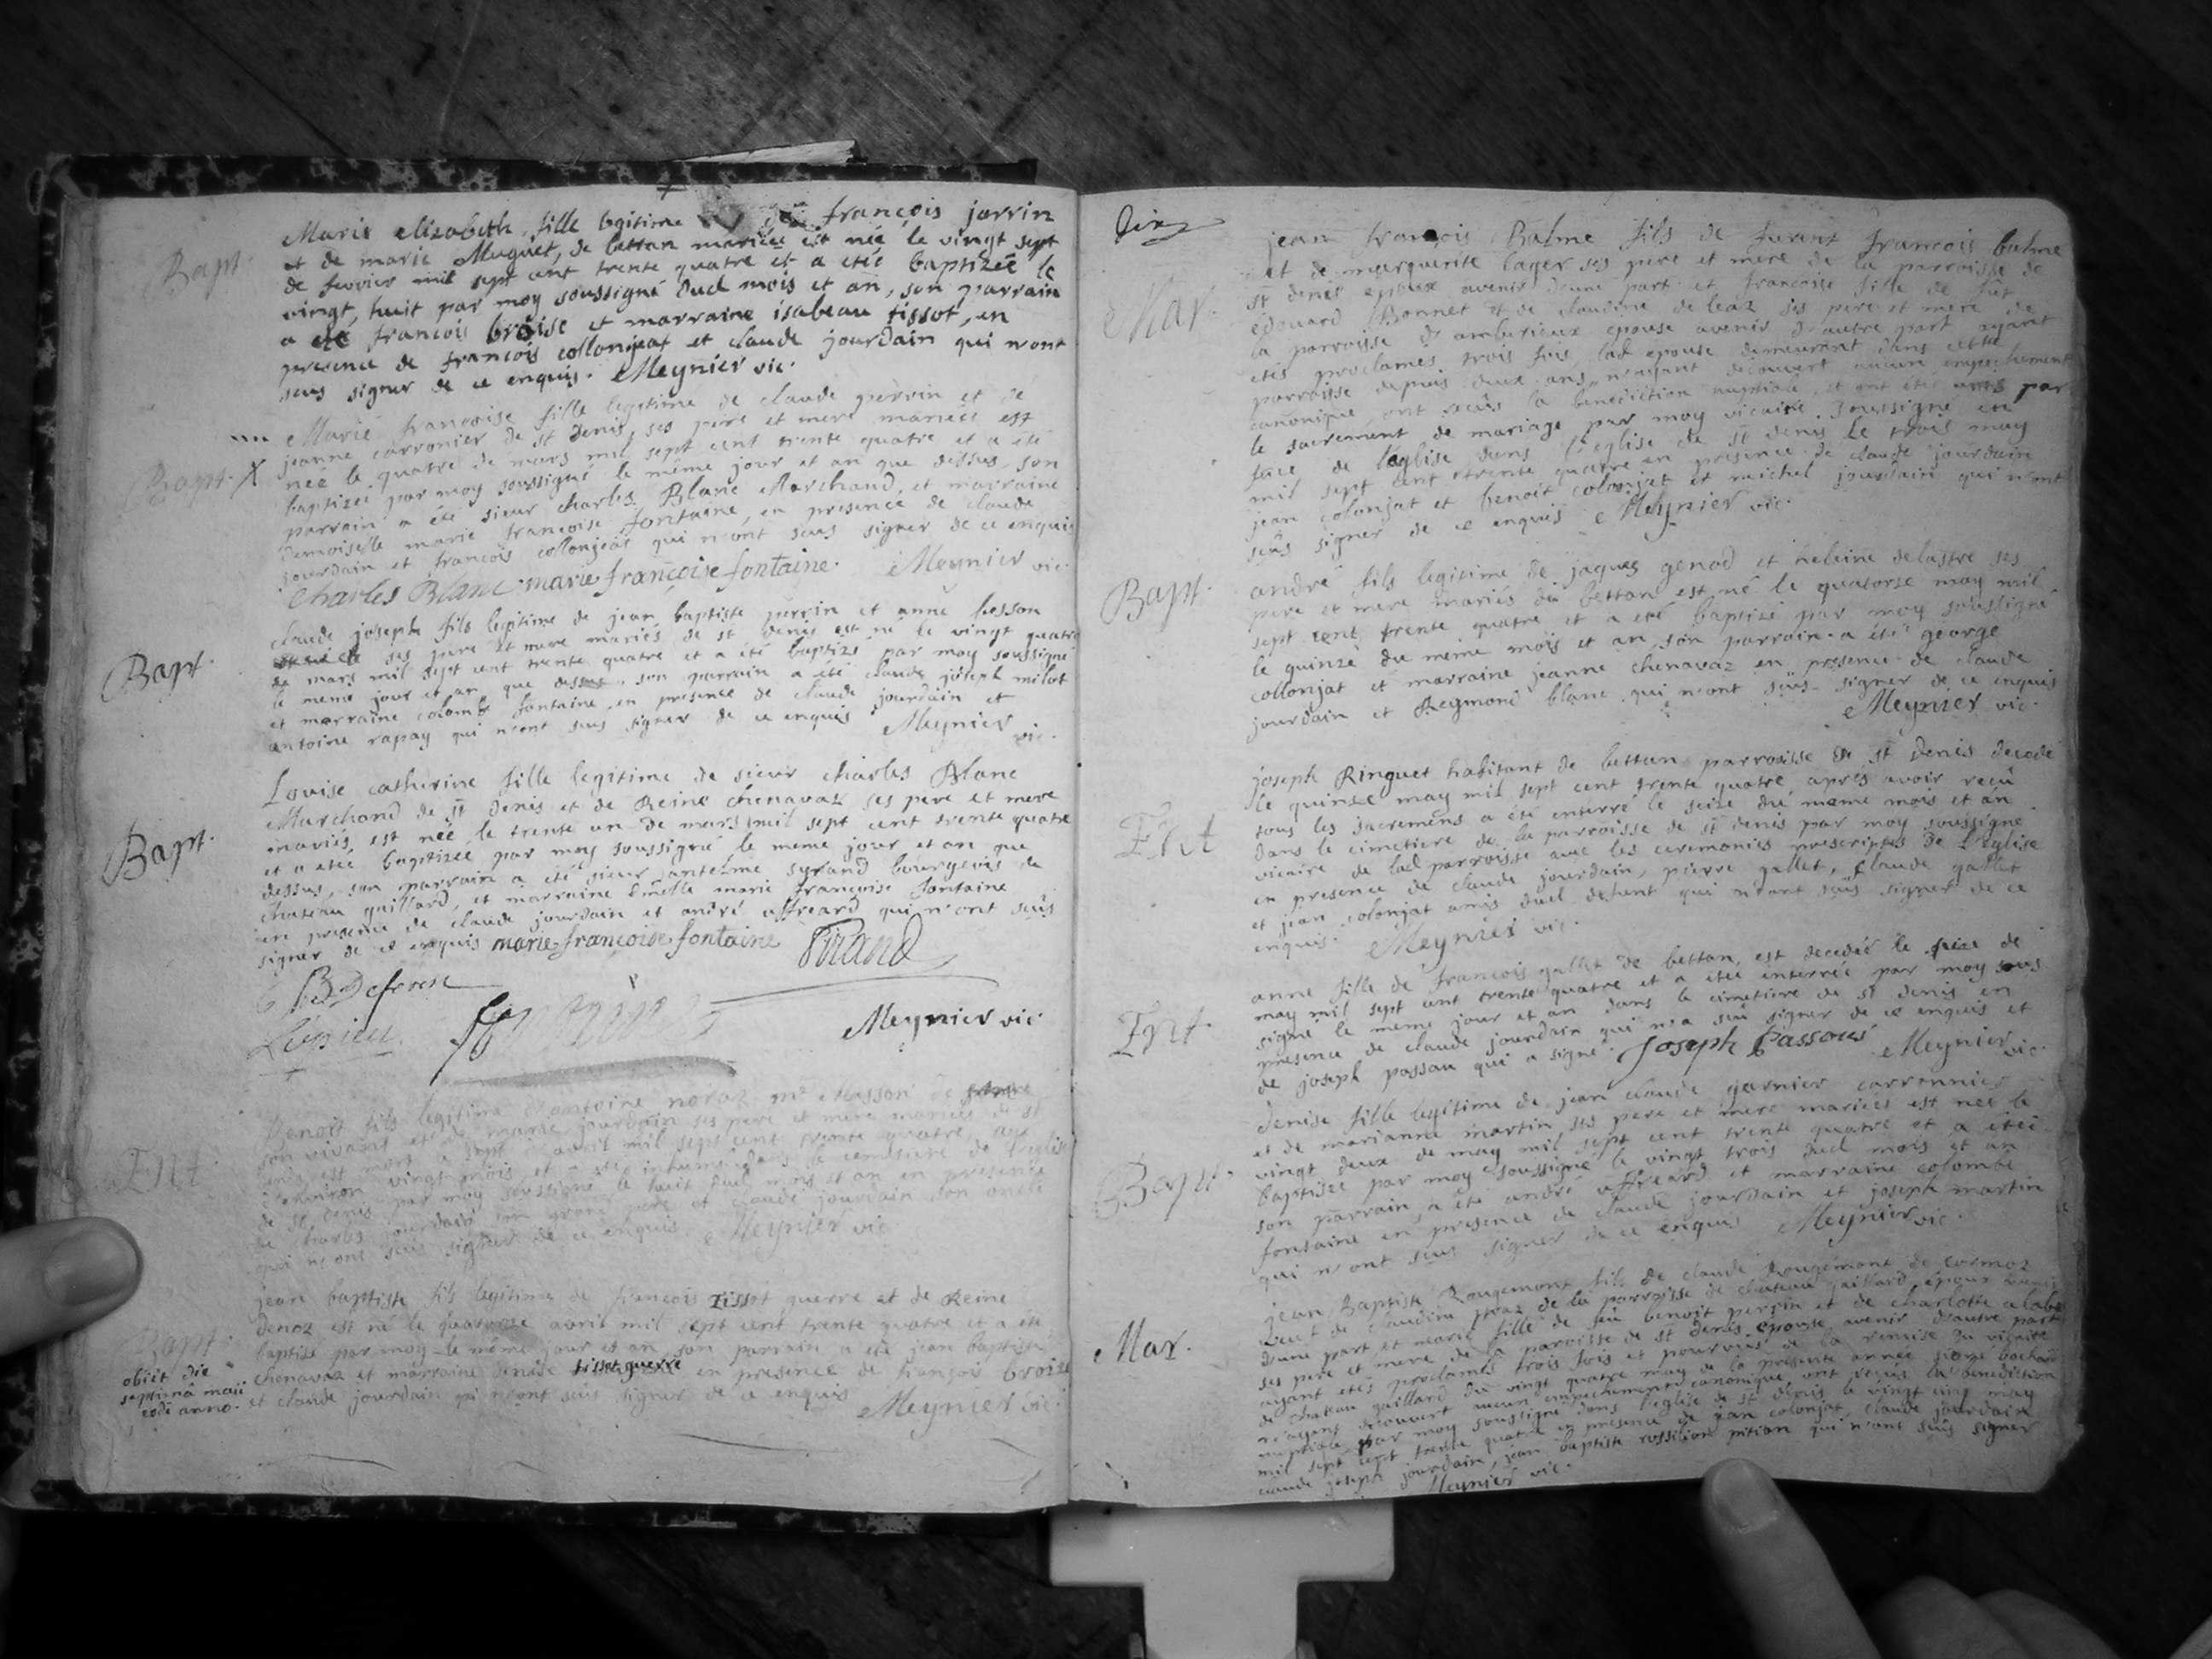 Bapt.
Marie elizabeth fille legitime de françois jarrin
et de marie Muguet, de bettan mariés est née le vingt sept
de fevrier mil sept cent trente quatre et a etée baptizée le
vingt, huit par moy soussigné dud mois et an, son parrain
a eté françois broise et marraine isabeau tissot, en
presence de françois collonjeat et claude jourdain qui n'ont
seus signer de ce enquis. Meynier vic.
Bapt. X
Marie françoise fille legitime de claude perrin et de
jeanne carronier de st Denis, ses pere et mere mariées est
née le quatre de mars mil sept cent trente quatre et a été
baptizée par moy soussigné le même jour et an que dessus, son
parrain a été sieur charles Blanc Marchand, et marraine
Demoiselle marie françoise fontaine, en presence de claude
jourdain et françois collonjeat qui n'ont seus signer de ce enquis
Charles Blanc marie françoise fontaine. Meynier vic.
Bapt.
claude joseph fils legitime de jean baptiste perrin et anne besson
ses pere et mere mariés de st denis est né le vingt quatre
de mars mil sept cent trente quatre et a été baptizé par moy soussigné
le meme jour et an que dessus, son parrain a été claude joseph milot
et marraine colombe fontaine, en presence de claude jourdain et
antoine rapay qui n'ont seus signer de ce enquis Meynier
vic.
Bapt.
Louise catherine fille legitime de sieur charles Blanc
Marchand de st Denis et de Reine chenavaz ses pere et mere
mariés est née le trente un de mars mil sept cent trente quatre
et a etée baptizée par moy soussigné le meme jour et an que
dessus, son parrain a été sieur antelme sirand bourgeois de
chateau gaillard, et marraine Dmelle marie françoise fontaine
en presence de claude jourdain et andré affreard qui n'ont seûs
signer de ce enquis marie françoise fontaine Sirand
Meynier vic
Ent.
Benoit fils legitime d'antoine noraz me Masson de
son vivant et de marie jourdain ses pere et mere mariés de st
denis est mort le sept d'avril mil sept cent trente quatre agé
d'environ vingt mois et a été inhumé dans le cemetiere de l'eglise
de st denis par moy soussigné le huit dud mois et an en presence
de charles jourdain son grand pere et claude jourdain son oncle
qui n'ont seus signer de ce enquis Meynier vic
Bapt.
jean baptiste fils legitime de françois Tissot guerre et de Reine
denoz est né le quatorze avril mil sept cent trente quatre et a été
baptizé par moy le même jour et an son parrain a été jean baptiste
chenavaz et marraine denise tissot guerre en presence de françois broize
et claude jourdain qui n'ont seus signer de ce enquis Meynier vic.
obiit die
septimâ maii
eodē anno.
Dix
Mar.
jean françois Balme fils de furent francois balme
et de marguerite lager ses pere et mere de la parroisse de
st denis epoux avenir d'une part et francoise fille de fut
edouard Bonnet et de claudine deleaz ses pere et mere de
la parroisse d'ambutrieux epouse avenir d'autre part ayant
etés proclamés trois fois lad epouse demeurant dans cette
parroisse depuis deux ans n'ayant decouvert aucun empechement
canonique ont reçûs la benediction nuptiale et ont étés unis par
le sacrement de mariage par moy vicaire soussigné en
face de l'église dans l'eglise de st denis le trois may
mil sept cent trente quatre en presence de claude jourdain
jean colonjat et benoit colonjat et michel jourdain qui n'ont
seûs signer de ce enquis Meynier vic.
Bapt.
andré fils legitime de jaques genod et heleine delastre ses
pere et mere mariés de bettan est né le quatorse may mil
sept cent trente quatre et a eté baptizé par moy soussigné
le quinze du meme mois et an, son parrain a été george
collonjat et marraine jeanne chenavaz en presence de claude
jourdain et Reymond blanc qui n'ont sûs signer de ce enquis
Meynier vic.
Ent
joseph Ringuet habitant de bettan parroisse de st Denis decedé
le quinze may mil sept cent trente quatre apres avoir reçû
tous les sacremens a été enterré le seize du meme mois et an
dans le cimetiere de la parroisse de st denis par moy soussigné
vicaire de lad parroisse avec les ceremonies prescriptes de l'Eglise
en presence de claude jourdain, pierre gallet, claude gallet
et jean colonjat amis dud defunt qui n'ont seûs signer de ce
enquis. Meynier vic.
Ent.
anne fille de francois gallet de bettan, est decedée le seize de
may mil sept cent trente quatre et a etée enterrée par moy sous
signé le meme jour et an dans le cimetiere de st denis en
presence de claude jourdain qui n'a seû signer de ce enquis et
de joseph passou qui a signé. Joseph Passous Meynier vic.
Bapt.
Denise fille legitime de jean claude garnier carronnier
et de marianne martin, ses pere et mere mariées est née le
vingt deux de may mil sept cent trente quatre et a étéé
baptisée par moy soussigné le vingt trois dud mois et an
son parrain a été andré affreard et marraine colombe
fontaine en presence de claude jourdain et joseph martin
qui n'ont seus signer de ce enquis Meynier vic.
Mar.
jean Baptiste Rougemont fils de claude Rougemont de cormoz
veuf de claudine praz de la parroisse de chateau gaillard, époux avenir
d'une part et marie fille de feu benoit perrin et de charlotte
ses pere et mere de la paroisse de st denis epouse avenir d'autre part
ayant etés proclamés trois fois et pourvus de la remise du vicaire
de chateau gaillard du vingt quatre may de la presente année signé
n'ayant decouvert aucun empechement canonique ont reçûs la benediction
nuptiale par moy soussigné dans l'eglise de st denis le vingt cinq may
mil sept cent trente quatre en presence de jean colonjat, claude jourdain
claude joseph jourdain, jean baptiste rossillon pition qui n'ont seûs signer
Meynier vic.